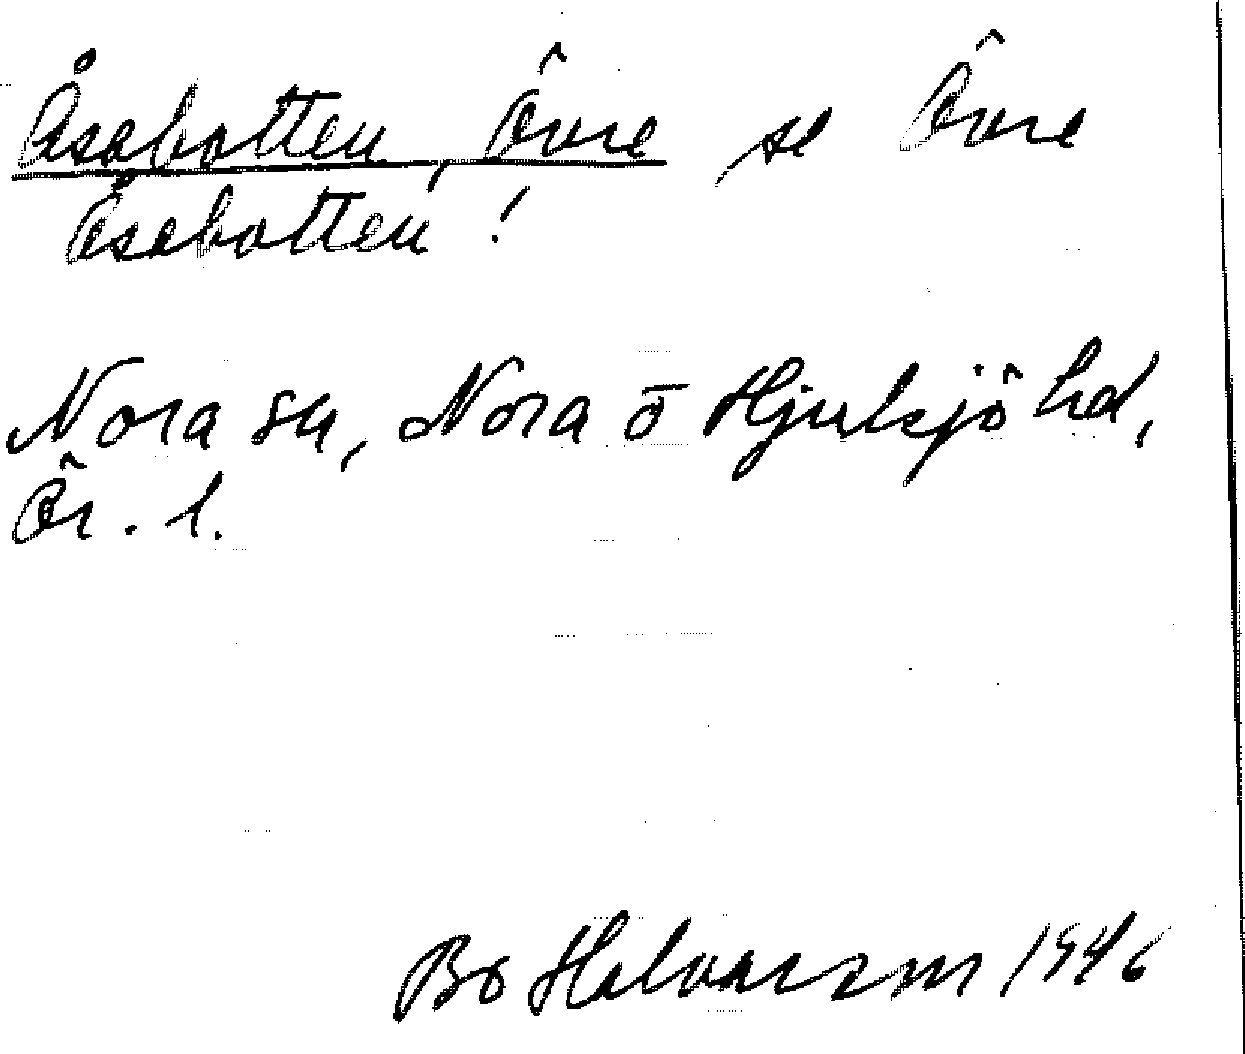 Åsabotten, Övre se Övre
Åsabotten!
Nora sn, Nora o Hjulsjö hd,
Ör. l.
Bo Halvarson 1946